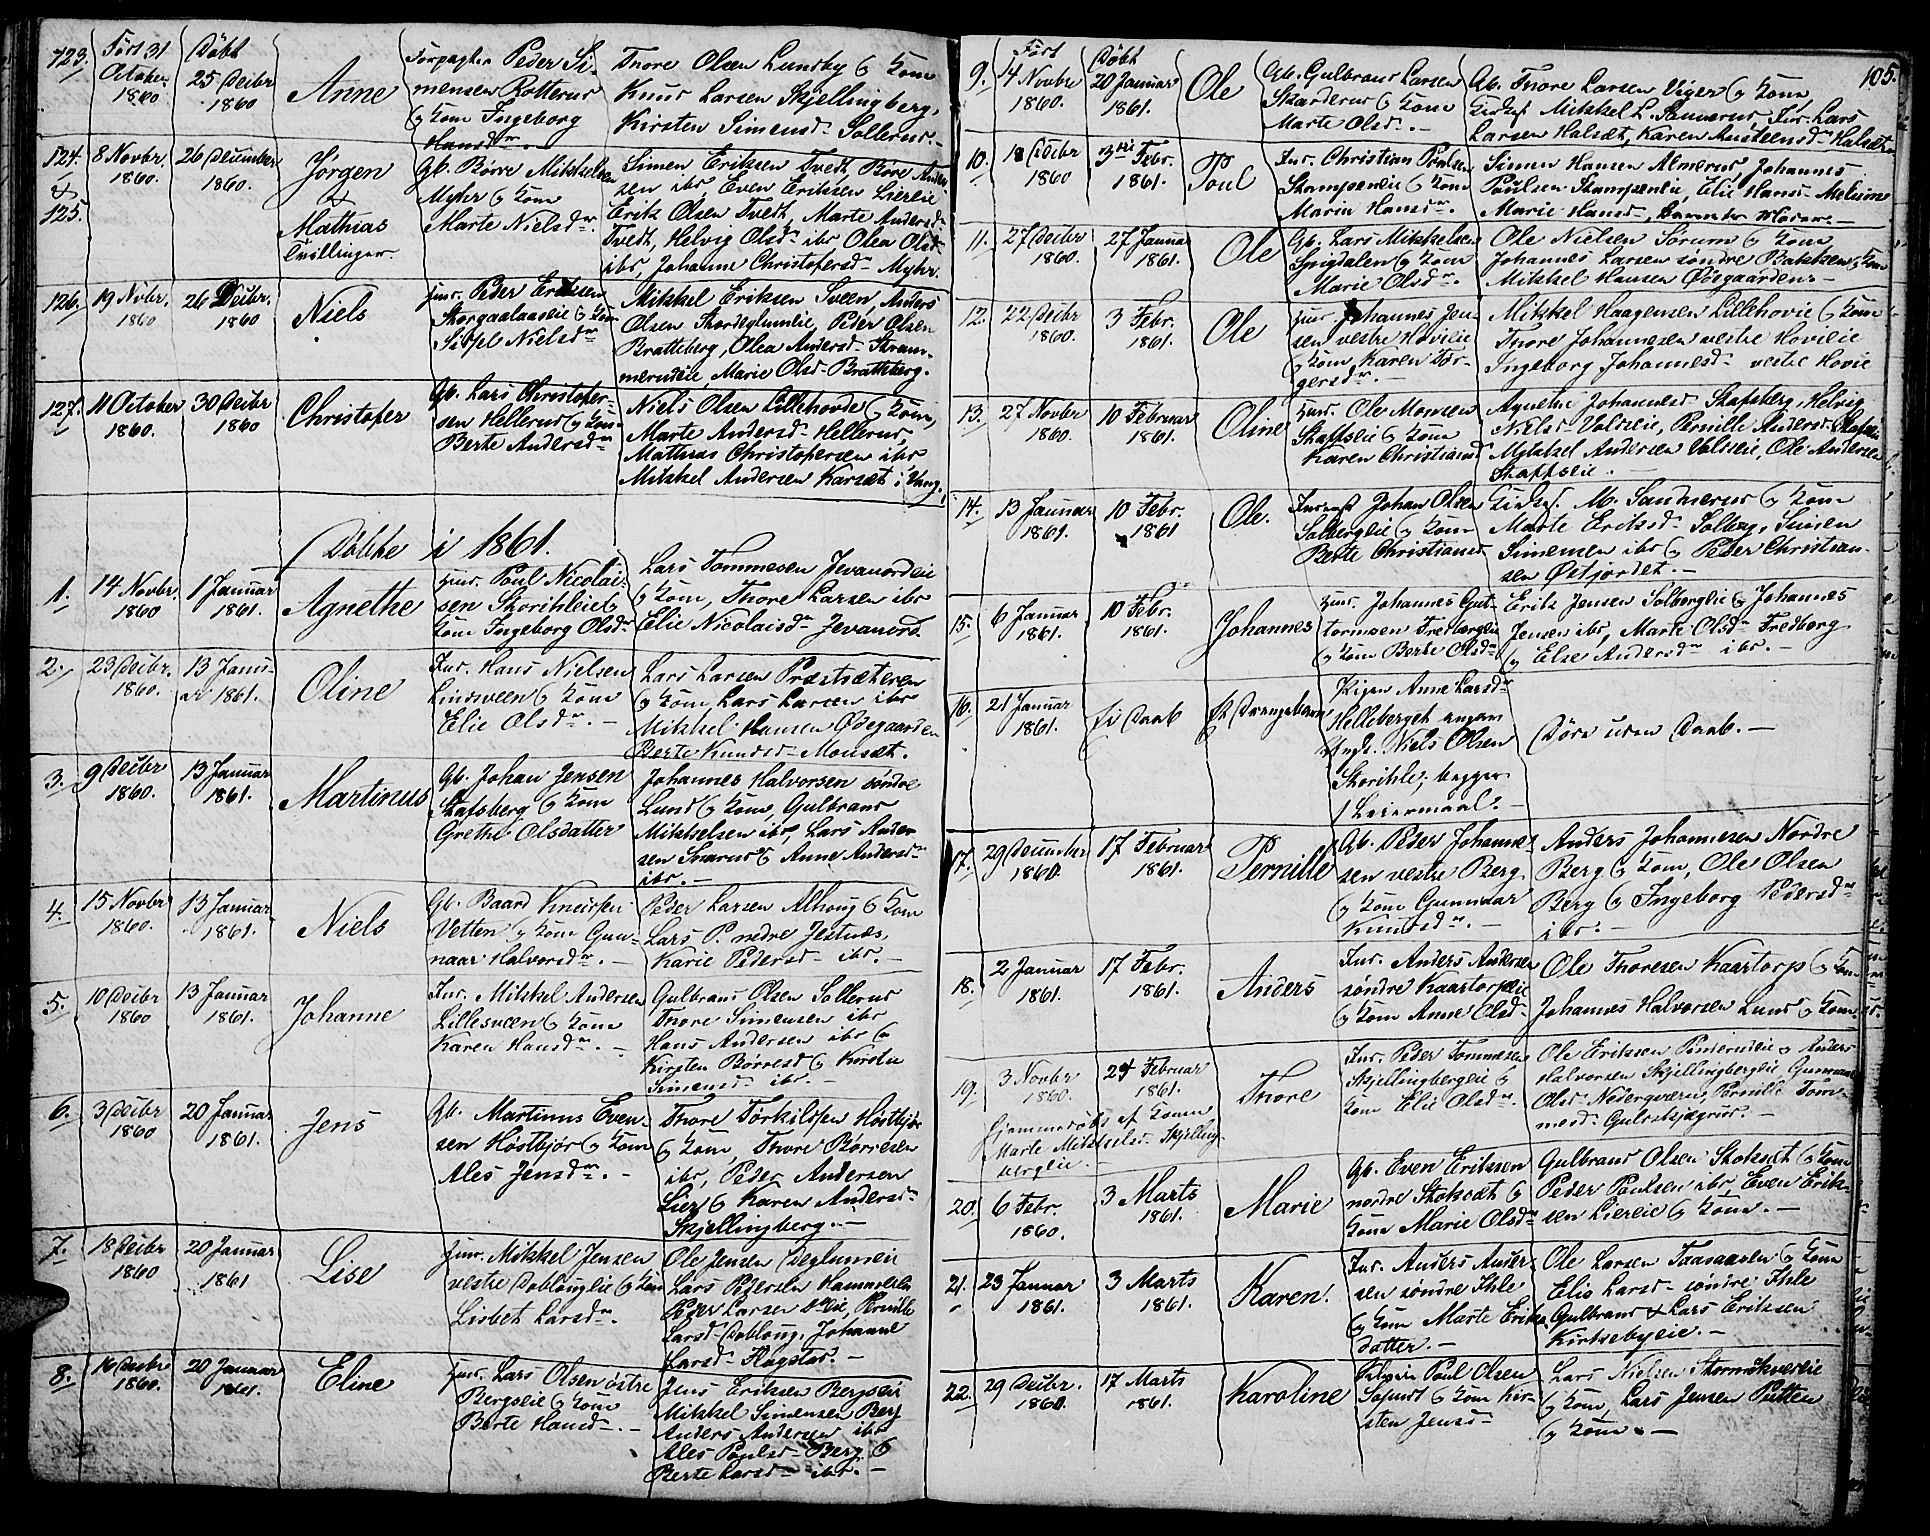 123.
Født 31
October
1860
Døbt
25 Decbr
1860
Anne
Forpagter Peder Si-
mensen Rotterud
og Kone Ingeborg
Hansdr. -
Thore Olsen Lundby og Kone
Knud Larsen Skjellingberg,
Kirsten Simensd- Sollerud. -
124.
&
125.
8 Novbr.
1860.
26 December
1860.
Jørgen
&
Mathias
Tvillinger.
Gb. Børre Mikkelsen
Myhr og Kone
Marte Nielsdr.
Simen Eriksen Tvedt, Børre Ander-
sen ibd, Even Eriksen Liereie
Erik Olsen Tvedt, Marte Andersd-
Tvedt, Helvig Olsdr ibd, Olea Olsd-
ibd, Johanne Christofersd- Myhr.
126.
19 Novbr.
1860
26 Decbr.
1860
Niels
Huusm. Peder Eriksen
Skorgaalaaseie og Kone
Sidsel Nielsdr
Mikkel Eriksen Sveen, Anders
Olsen Skardeglumeie, Peder Olsen
Bratteberg, Olea Andersd- Stram-
merudeie, Marie Olsd- Bratteberg.
127.
11 October
1860.
30 Decbr
1860
Christofer
Gb. Lars Christofer-
sen Hellerud og Kone
Berte Andersdr
Niels Olsen Lillehovde og Kone,
Marte Andersd- Hellerud,
Mathias Christofersen ibd
Mikkel Andersen Karsæt i Vang.
Døbte i 1861.
1.
14 Novbr.
1860
1 Januar
1861.
Agnethe
Huusm. Poul Nicolai-
sen Skorihleie og
Kone Ingeborg Olsdr
Lars Tommesen Jevanordeie
og Kone, Thore Larsen ibd
Elie Nicolaisdr Jevanord.
2.
23 Decbr.
1860.
13 Janu-
ar 1861.
Oline
Ind. Hans Nielsen
Lindsveen og Kone
Elie Olsdr. -
Lars Larsen Præstsæteren
og Kone, Lars Larsen ibd
Mikkel Hansen Ødegaarden
Berte Knudsd- Monsæt.
3.
9 Decbr
1860.
13 Januar
1861.
Martinus
Gb. Johan Jensen
Skafsberg og Kone
Grethe Olsdatter
Johannes Halvorsen søndre
Lund og Kone, Gulbrand
Mikkelsen ibd, Lars Ander
sen Snarud og Anne Andersdr
ibd. -
4.
15 Novbr
1860.
13 Januar
1861.
Niels
Gb. Baard Knudsen
Vetten og Kone Gun-
naar Halvorsdr. -
Peder Larsen Alhoug og Kone
Lars P. nedre Jestnæs,
Karie Pedersd- ibd. -
5.
10 Decbr
1860
13 Januar
1861.
Johanne
Ind. Mikkel Andersen
Lillesveen og Kone
Karen Hansdr. -
Gulbrand Olsen Sollerud
Thore Simensen ibd
Hans Andersen ibd og
Kirsten Børresd og Kirsten
Simensd ibd. -
6.
3 Decbr
1860
20 Januar
1861.
Jens
Gb. Martinus Even-
sen Høstbjør og Kone
Ales Jensdr. -
Thore Torkildsen Høstbjør
og Kone, Thore Børresen
ibd, Peder Andersen
Lier og Karen Andersd-
Skjellingberg. -
7.
18 Decbr
1860
20 Januar
1861
Lise
Huusm. Mikkel Jensen
vestre Doblougeie og Kone
Lisbet Larsdr.
Ole Jensen Deglumeie
Lars Pedersen Hammelula
Peder Larsen Pernille
Larsd- Doblong, Johanne
Larsd- Flagstad. -
8.
16 Decbr
1860.
20 Januar
1861.
Eline
Huusm. Lars Olsen østre
Bergseie og Kone
Berte Hansd-. -
Jens Eriksen Bergseie
Mikkel Simensen Berg
Anders Andersen ibd
Ales Poulsd- Berg og
Berte Larsd- ibd. -
105.
9.
Født
14 Novbr
1860.
Døbt
20 Januar
1861.
Ole
Gb. Gulbrand Larsen
Skarderud og Kone
Marte Olsd-. -
Gb. Thore Larsen Viger og Kone
Kirks. Mikkel L. Sannerud, Ind. Lars
Larsen Halsæt, Karen Austeensdr Halsæt.
10.
18 Decbr
1860
3die Febr.
1861.
Poul
Ind. Christian Poulsen
Stampeneie og Kone
Marin Hansdr.
Simen Hansen Almerud, Johannes
Paulsen Stampeneie, Elie Hansd- Melium
Marie Hansd-, Barnets Moder. -
11.
27 Decbr
1860.
27 Januar
1861.
Ole
Gb. Lars Mikkelsen
Spigdalen og Kone
Marie Olsdr.
Ole Nielsen Sørum og Kone
Johannes Larsen søndre Bakken og Kone
Mikkel Hansen Ødegaarden. -
12.
22 Decbr
1860.
3 Febr.
1861.
Ole
Huusm. Johannes Jen-
sen vestre Hovieie
og Kone Karen Tor-
gersdr. -
Mikkel Haagensen Lillehovie og Kone
Thore Johannesen vestre Hovieie
Ingeborg Johannesd- vestre Hovie
13.
27 Novbr
1860.
10 Februar
1861.
Oline
Huusm. Ole Monsen
Skaftseie og Kone
Karen Christiansd
Agnethe Johannesd Skafsberg, Helvig
Nielsd- Voldseie, Pernille Andersd Skafts
Mikkel Andersen Voldseie, Ole Andersen
Skaftseie. -
14.
13 Januar
1861.
10 Febr.
1861
Ole.
Inderst Johan Olsen
Solbergeie og Kone
Berte Christiansd-
Kirks. M. Sannerud og Kone
Marte Eriksd- Solberg, Simen
Simensen ibd og Peder Christian-
sen Østjordet. -
15.
6 Januar
1861.
10 Febr.
1861.
Johannes
Huusm. Johannes Gut-
tormsen Fredbergeie
og Kone Berte Olsdr
Erik Jensen Solbergeie og Johannes
Jensen ibd, Marte Olsdr Fredberg
og Else Andersdr ibd. -
16.
21 Januar
1861.
Ei Daab
Et Drengebarn
Pigen Anne Larsdr
Helleberget angav
Ungk. Niels Olsen
Skorihle; begges
1 Leiermaal. -
Døde uden Daab. -
17.
29 December
1860.
17 Februar
1861.
Pernille
Gb. Peder Johanne-
sen vestre Berg
og Kone Gunnaar
Knudsdr. -
Anders Johannesen Nordre
Berg og Kone, Ole Olsen
Berg og Ingeborg Pedersdr
ibd. -
18.
2 Januar
1861.
17 Febr.
1861.
Anders
Ind. Anders Andersen
søndre Kaartorpeie
og Kone Anne Olsd-
Ole Thoresen Kaartorp og Kone
Johannes Halvorsen Lund og Kone
19.
3 Novbr
1860.
24 Februar
1861.
Thore
Hjemmedøbt af Konen
Marte Mikkelsd- Skjelling-
bergeie.
Ind. Peder Tommesen
Skjellingbergeie og
Kone Elie Olsdr.
Ole Eriksen Pinderudeie, Anders
Halvorsen Skjellingbergeie Gunnaar
Olsd- Nedergveen, Pernille Tom-
mesd- Gulrekjøgrud. -
20.
6 Febr.
1860.
3 Marts
1861.
Marie
Gb. Even Eriksen
nordre Stoksæt og
Kone Marie Olsdr
Gulbrand Olsen Stoksæt og Kone
Peder Paulsen ibd, Even Erik-
sen Liereie og Kone. -
21.
23 Januar
1861.
3 Marts
1861.
Karen.
Ind. Anders Ander-
sen søndre Ihle
og Kone Marte Eriks-
datter. -
Ole Larsen Taasaasen og Kone
Elie Larsd- søndre Ihle
Gulbrand & Lars Eriksen
Kirkebyeie. -
22.
29 Decbr.
1860.
17 Marts
1861.
Karoline
Poul Olsen
og Kone Kir-
sten Jensd-
Lars Nielsen Stormokvereie
og Kone, Lars Jensen Putten
og Kone. -